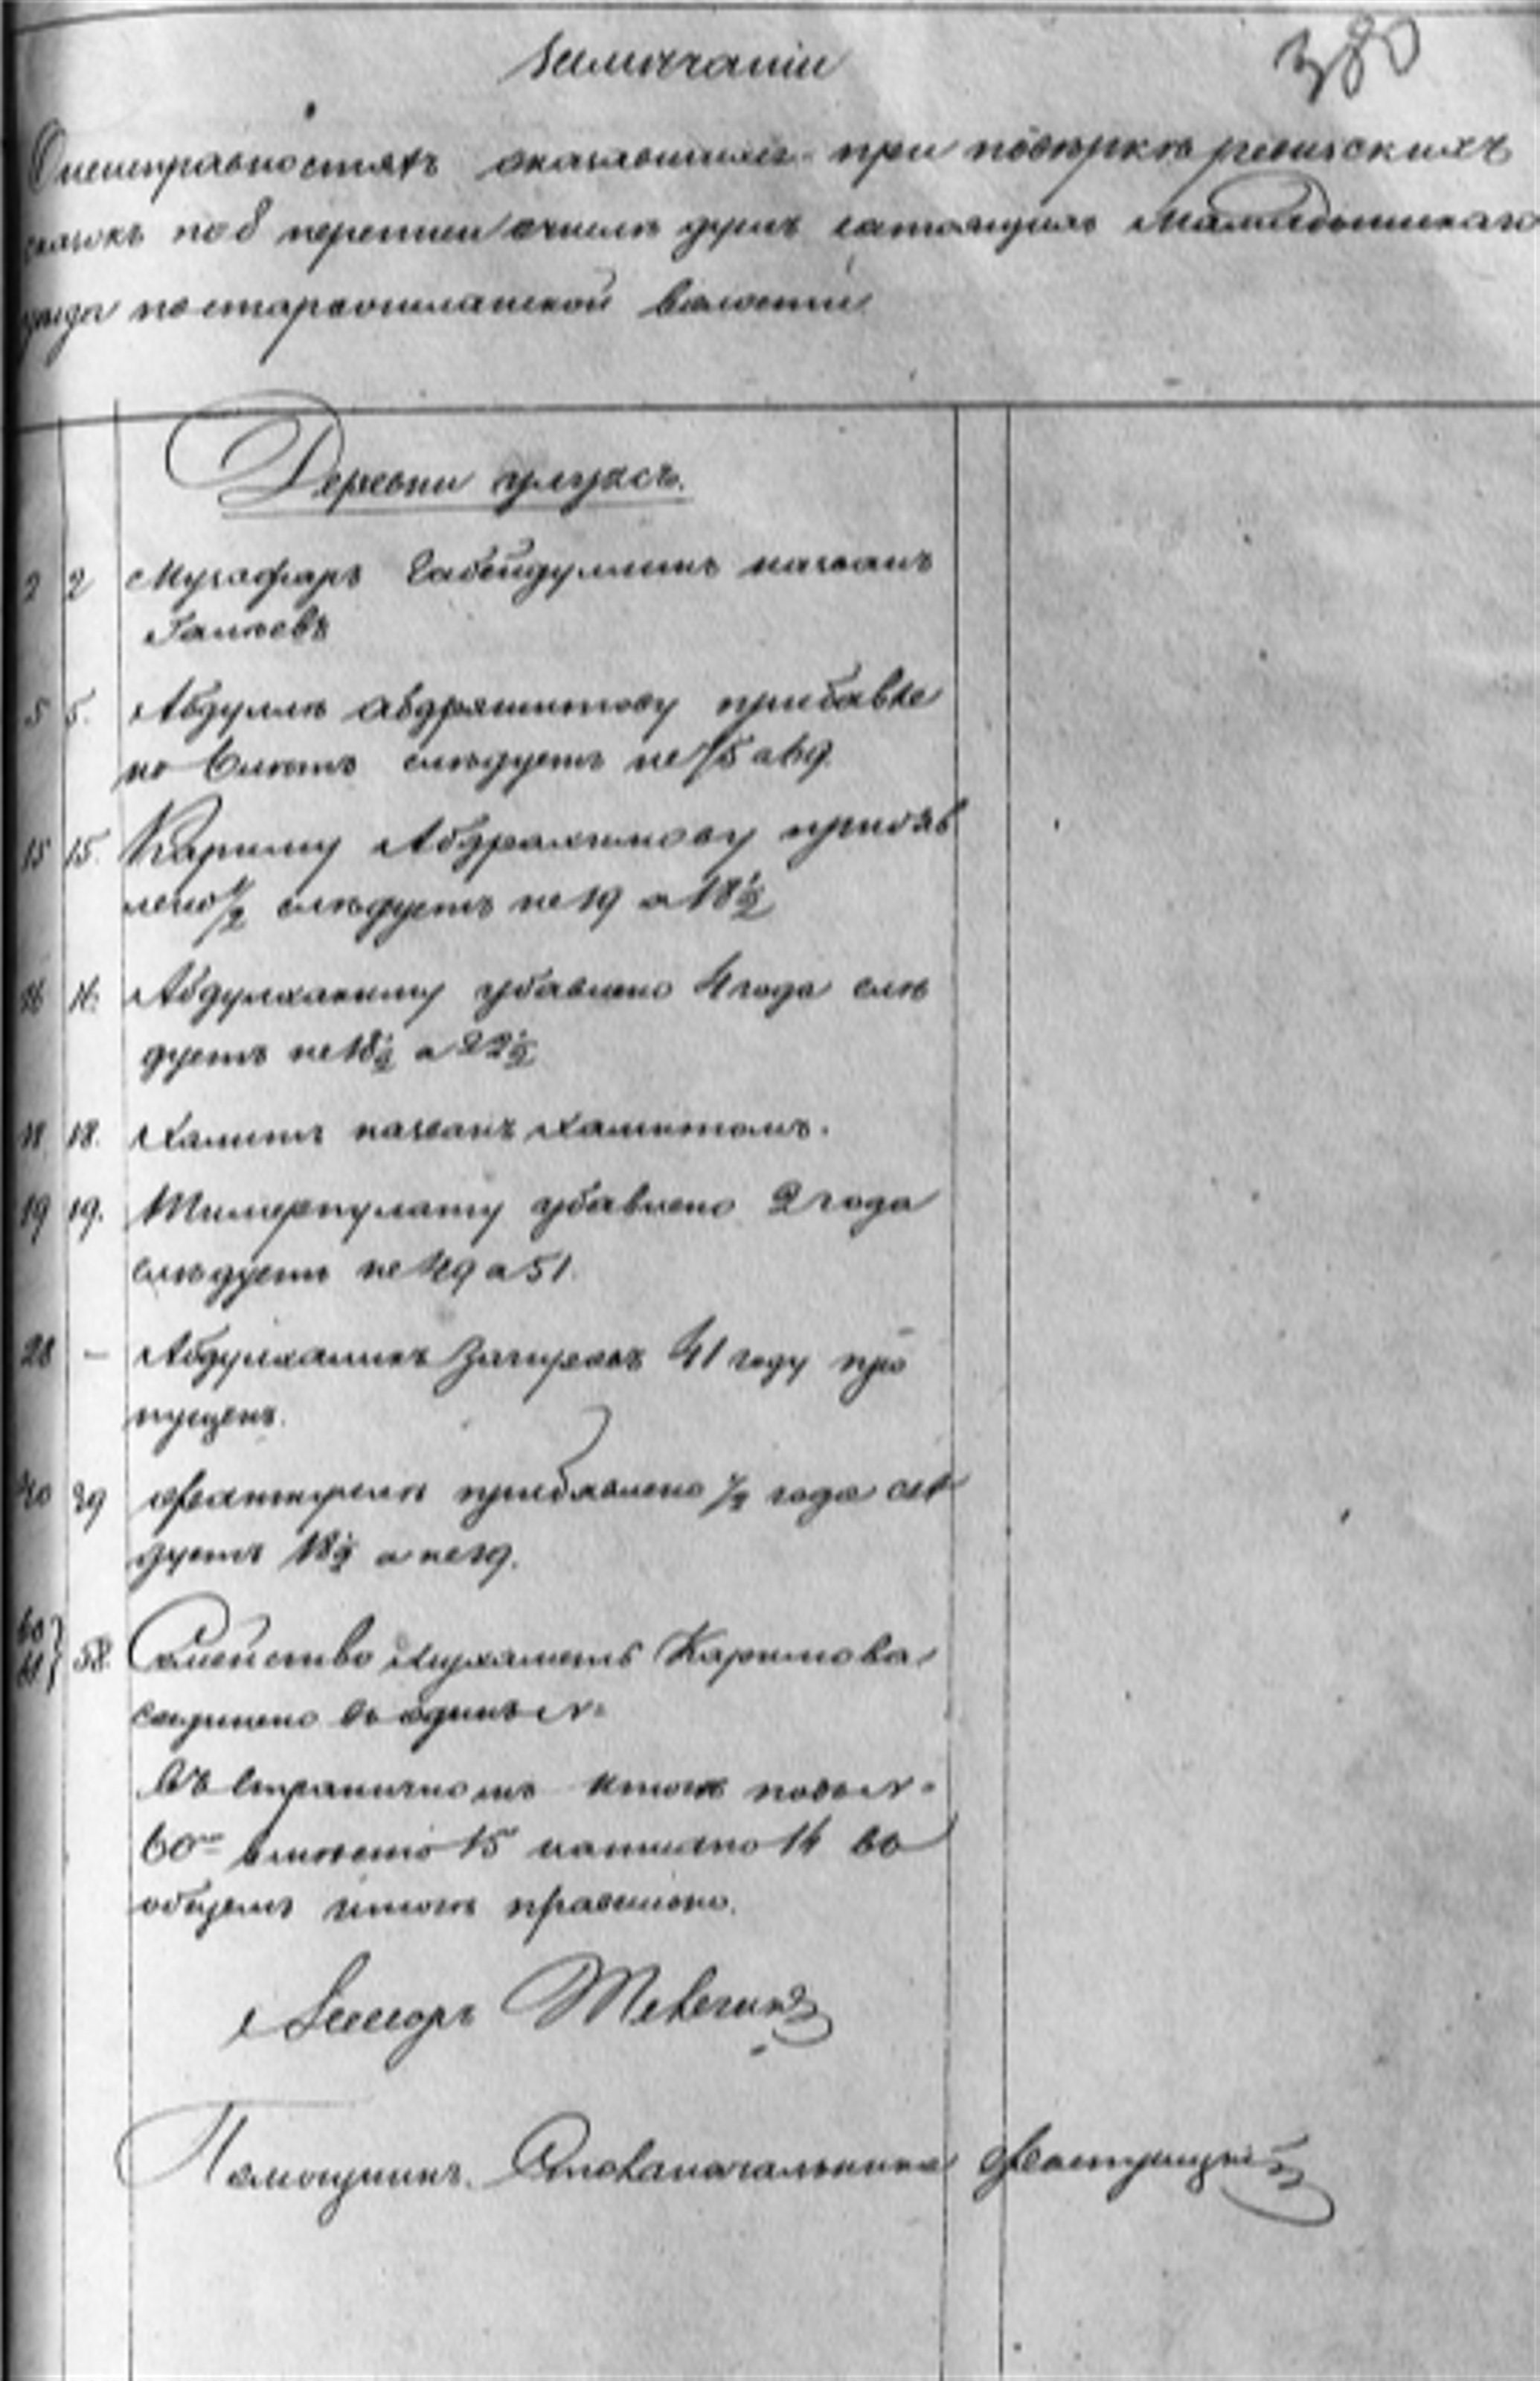 Замѣчаніи
380
О неисправностяхъ оказавшихся при повѣркѣ ревизскихъ
сказокъ по 8 переписи о числѣ душъ состоящихъ Мамадышскаго
уѣзда по староошланской волости
Деревни улуясъ.
2 2 Музафаръ Габейдуллинъ названъ
Галѣевъ
5 5. Абдуллѣ Абдряшитову прибавле
но 6 лѣтъ слѣдуетъ не 75 а 69.
15 15. Кариму Абдрахимову прибав
лено 1/2 слѣдуетъ не 19 а 18 1/2
16 16. Абдулхакиму убавлено 4 года слѣ
дуетъ не 18 1/2 а 22 1/2
18 18. Халитъ названъ Хамитомъ.
19 19. Тимерпулату убавлено 2 года
слѣдуетъ не 49 а 51.
28 — Абдулхаликъ 41 году про
пущенъ.
40 39 прибавлено 1/2 года слѣ
дуетъ 18 1/2 а не 19.
60 } 58. Семейство Мухаметъ Каримова
61 }
соединено въ одинъ №
Въ страничномъ итогѣ подъ №
60 вмѣсто 15 написано 14 во
общемъ итогѣ правильно.
Ассесоръ
Помощникъ Столоначальника